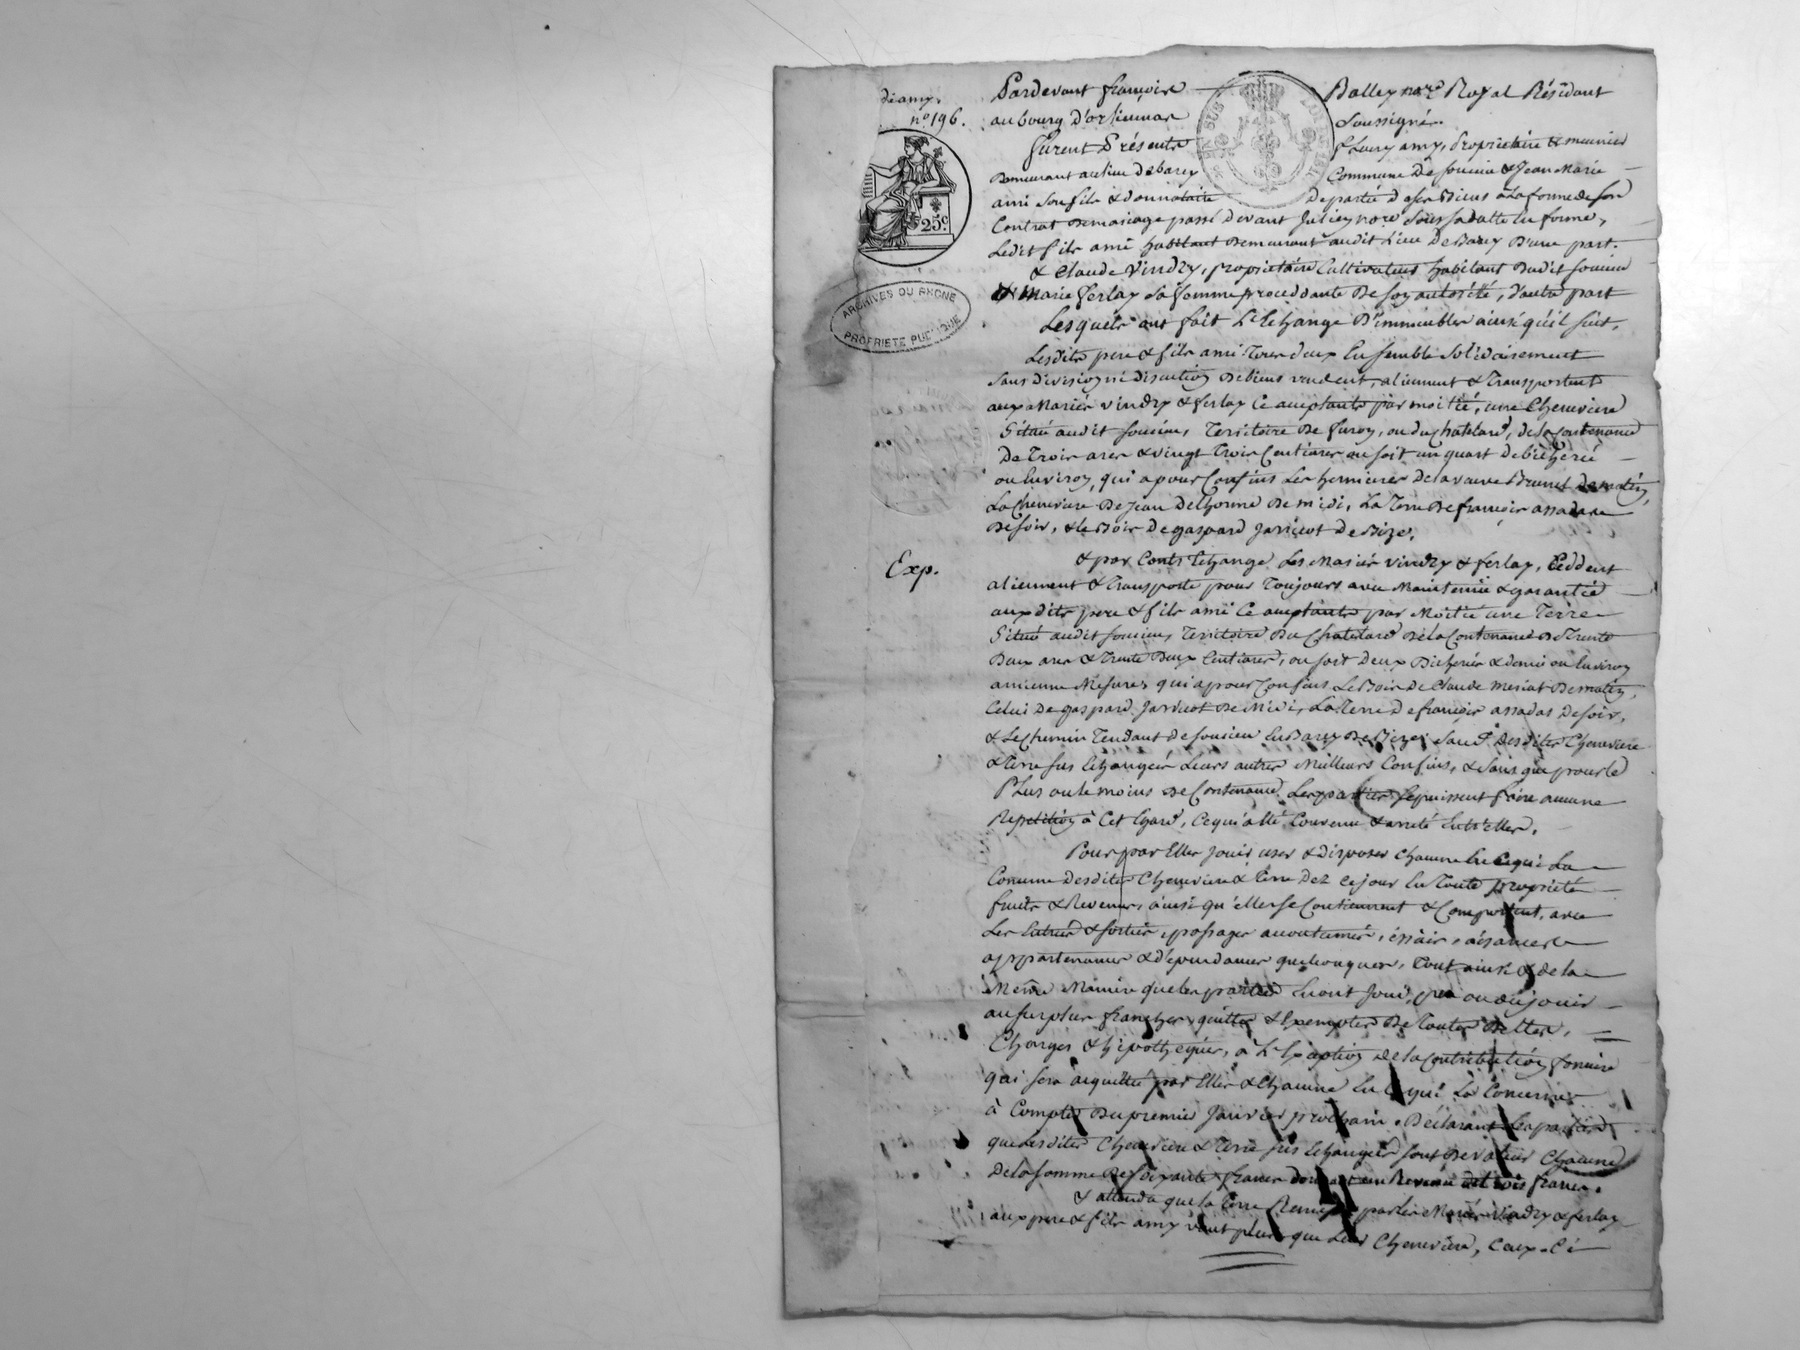 d'amy
nº 196.
25c.
ARCHIVES DU RHONE
PROPRIETE PUBLIQUE
Exp.
Pardevant françois Balley nore Royal Résidant
au bourg d'orliennas soussigné.
furent Présents Fleury amy, Propriétaire & meunier
Demeurant au lieu de barey Commune De soucieu & Jean Marie
ami son fils & donnataire De partie de ses Biens à la forme de son
Contrat De mariage passé Devant Julien nore sous sa datte en forme,
Ledit fils ami habitant Demeurant audit Lieu De Barey D'une part.
& Claude Vindry, propriétaire Cultivateur habitant Dudit soucieu
& Marie ferlay sa femme procédante De son autorité, d'autre part
Lesquels ont fait L'Echange D'immeubles ainsi qu'il suit.
Lesdits pere & fils ami Tous deux Ensemble solidairement
sans division ni discution De biens vendent, alienent & Transportent
aux Mariés vindry & ferlay Ce acceptants par moitié, une Cheneviere
Située audit soucieu, Territoire De furon, ou du Chatelard, de la Contenance
De Trois ares & vingt Trois Centiares ou soit un quart de bicherée
ou Environ, qui a pour Confins Les de la veuve Brunet de matin,
La Cheneviere De Jean Delhorme De midi, La Terre De françois assada
De soir, & le Bois De gaspard Jaricot De Bize.
& par Contr'Echange Les Mariés vindry & ferlay, Ceddent
alienent & Transporte pour Toujours avec Maintenue & garantie
auxdits pere & fils ami Ce acceptants par Moitié une Terre
Située audit soucieu, Territoire Du Chatelard De la Contenance De Trente
Deux ares & Trente Deux Centiares, ou soit Deux Bicherées & demie ou Environ
ancienne Mesure, qui a pour Confins Le Bois De Claude Meriat De matin,
Celui De gaspard Jaricot De Midi, La Terre De françois assadas De soir,
& Le Chemin Tendant de soucieu En Barey De Bize, sauf Desdites Cheneviere
& Terre sus Echangées Leurs autres Meilleurs Confins, & sans que pour le
Plus ou le moins De Contenance Les parties se puissent faire aucune
Repetition à Cet Egard, Ce qui a été Convenu & arreté Entr'elles.
Pour par Elles Jouir user & Disposer Chacune En Ce qui La
Concerne Desdites Cheneviere & Terre Dez ce jour En Toute propriété
fruits & Revenus, ainsi qu'elles se Contiennent & Comportent, avec
Les Entrées & sorties, passages accoutumés, , aisances
appartenances & dépendances quelconques, Tout ainsi & de la
Même Maniere que les parties En ont Joui, pu ou dû jouir
au surplus franches, quittes & Exemptes De Toutes Dettes,
Charges & hipotheques, à L'Exeption de la Contribution fonciere
qui sera acquittée par Elles & Chacune En Ce qui La Concerne
à Compter Du premier Janvier prochain. Déclarant Les parties
que Lesdites Cheneviere & Terre sus Echangées sont De valeur Chacune
De la somme De soixante francs donnant un Revenu de Trois francs.
& attendu que la Terre Remise par les Mariés vindry & ferlay
aux pere & fils amy vaut plus que Leur Cheneviere, Ceux-Ci